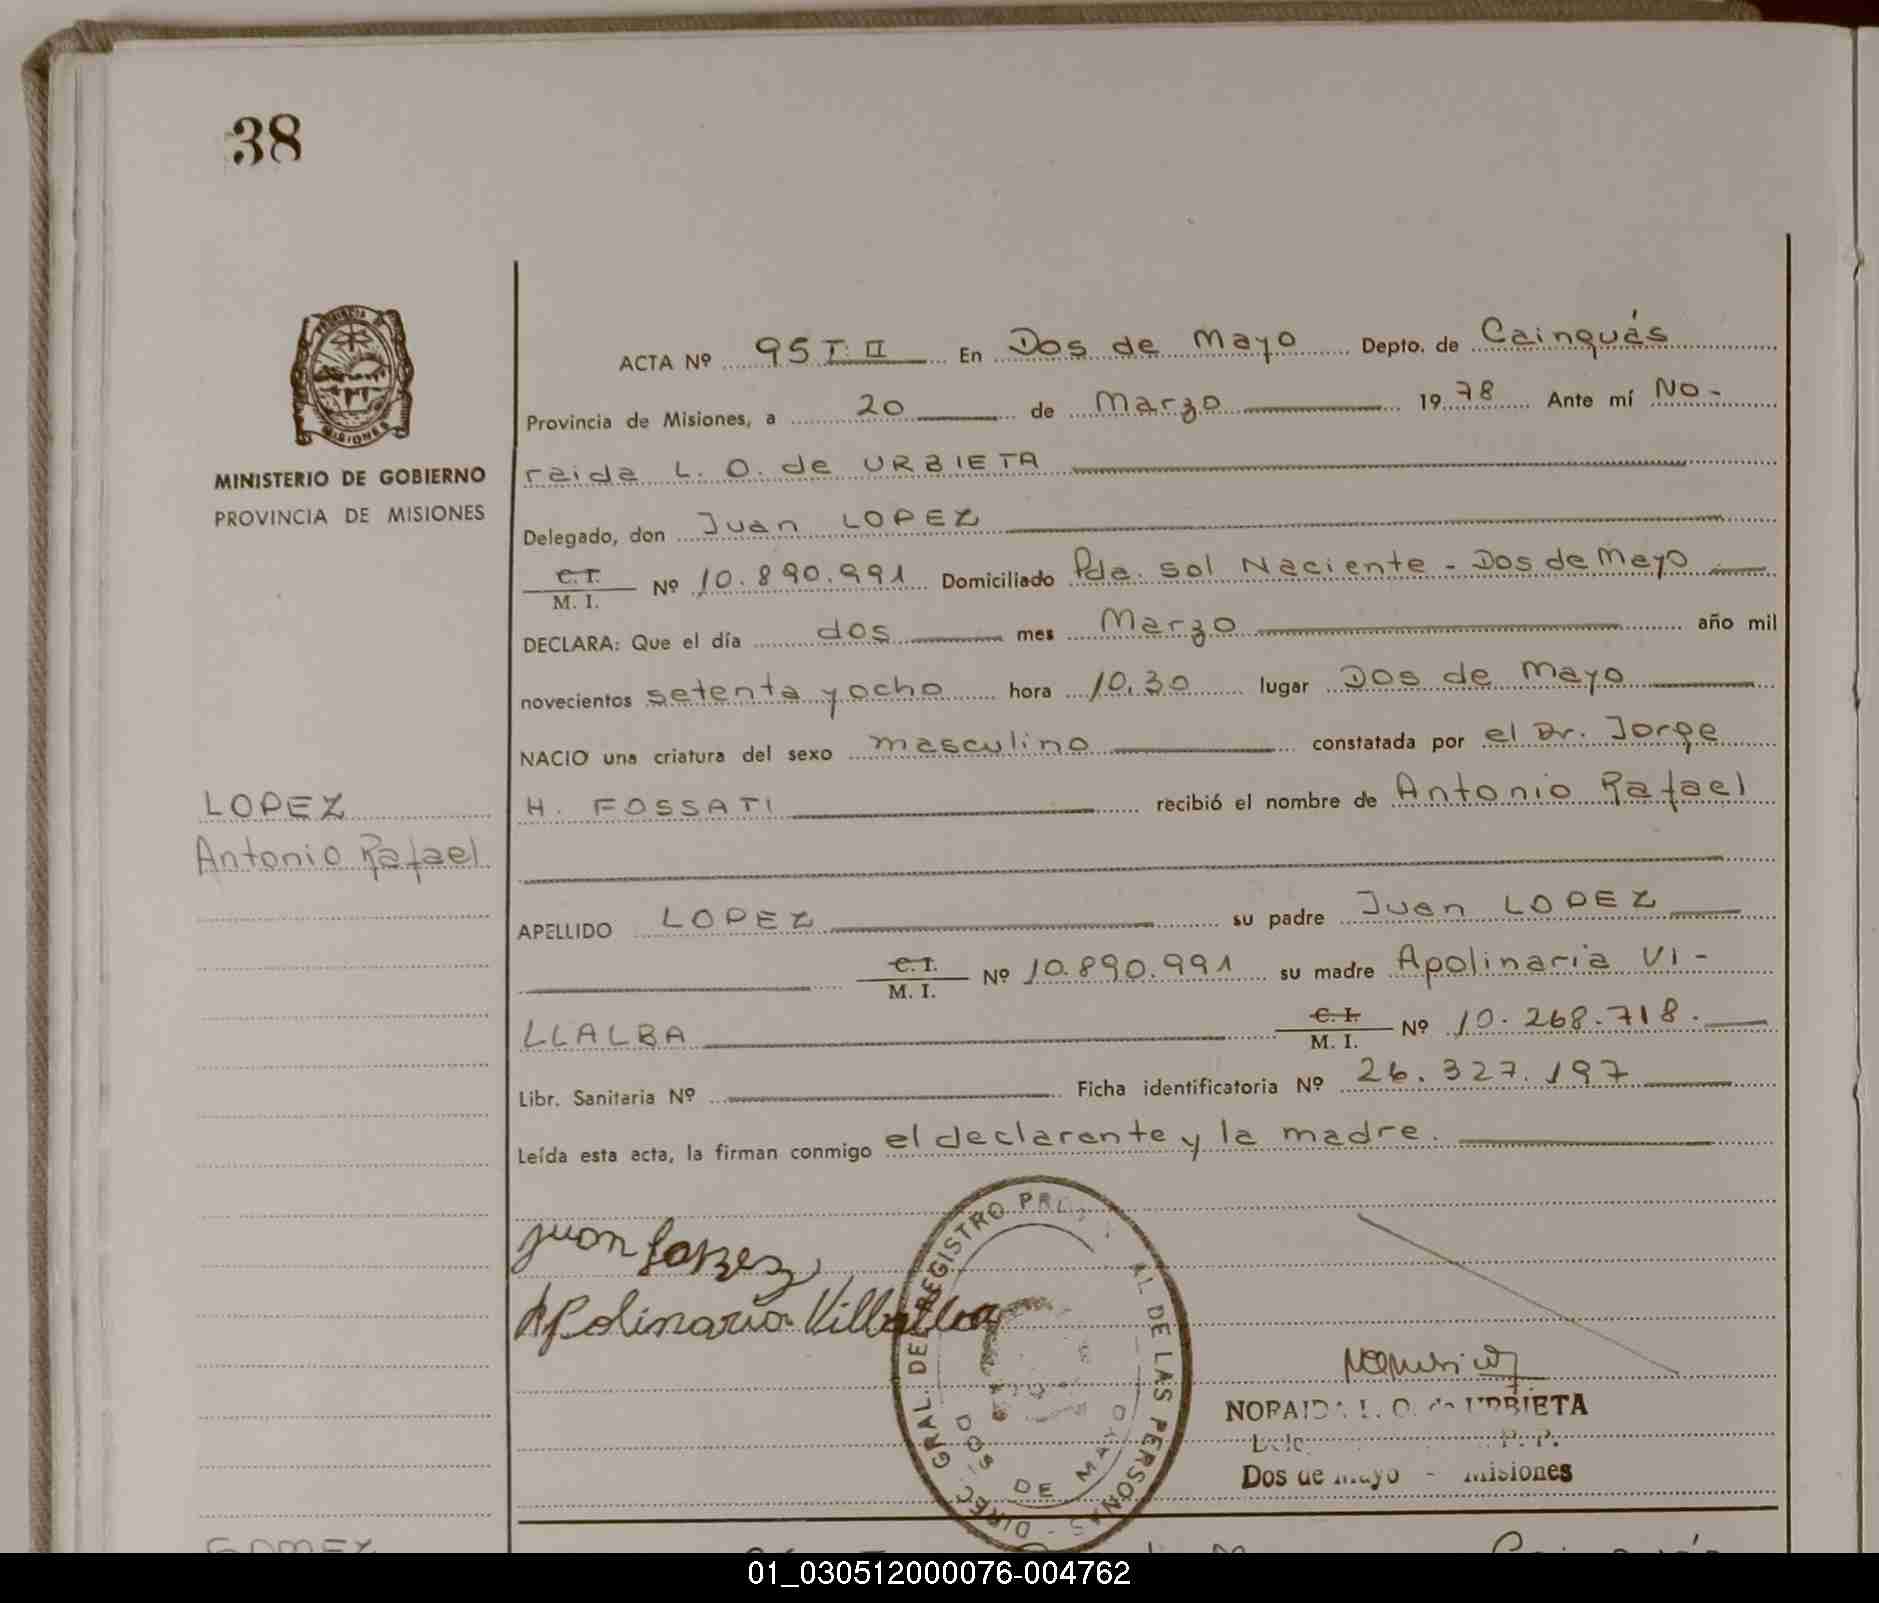 38
PROVINCIA DE
MISIONES
MINISTERIO DE GOBIERNO
PROVINCIA DE MISIONES
LOPEZ
Antonio Rafael
ACTA Nº 95 T. II En Dos de Mayo Depto. de Cainguás
Provincia de Misiones, a 20 de Marzo 1978 Ante mí No-
raida L. O. de URBIETA
Delegado, don Juan LOPEZ
C.I.
M. I. Nº 10.890.991 Domiciliado Pda. Sol Naciente - Dos de Mayo
DECLARA: Que el día dos mes Marzo año mil
novecientos setenta y ocho hora 10,30 lugar Dos de Mayo
NACIO una criatura del sexo masculino constatada por el Dr. Jorge
H. FOSSATI recibió el nombre de Antonio Rafael
APELLIDO LOPEZ su padre Juan LOPEZ
C.I.
M. I. Nº 10.890.991 su madre Apolinaria VI-
LLALBA C.I.
M. I. Nº 10.268.718.
Libr. Sanitaria Nº Ficha identificatoria Nº 26.327.197
Leída esta acta, la firman conmigo el declarante y la madre.
Juan Lopez
Apolinaria Villalba
DIREC. GRAL. DEL REGISTRO AL DE LAS PERSONAS -
DOS DE MAYO
NORAIDA L. O. de URBIETA
Dos de Mayo - Misiones
GOMEZ
01_030512000076-004762